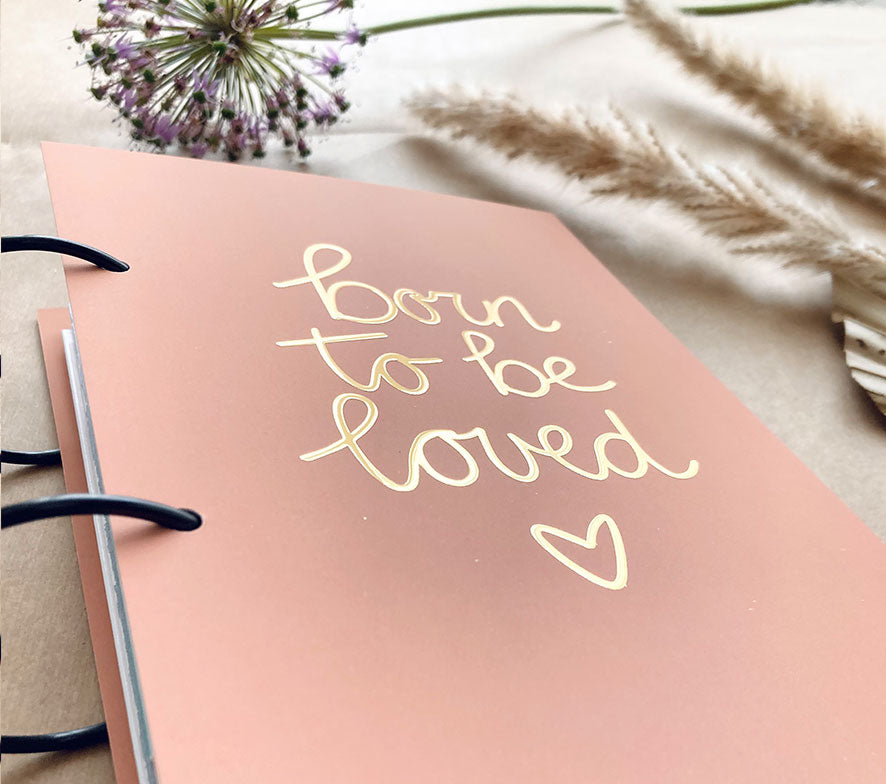 born
to be
loved